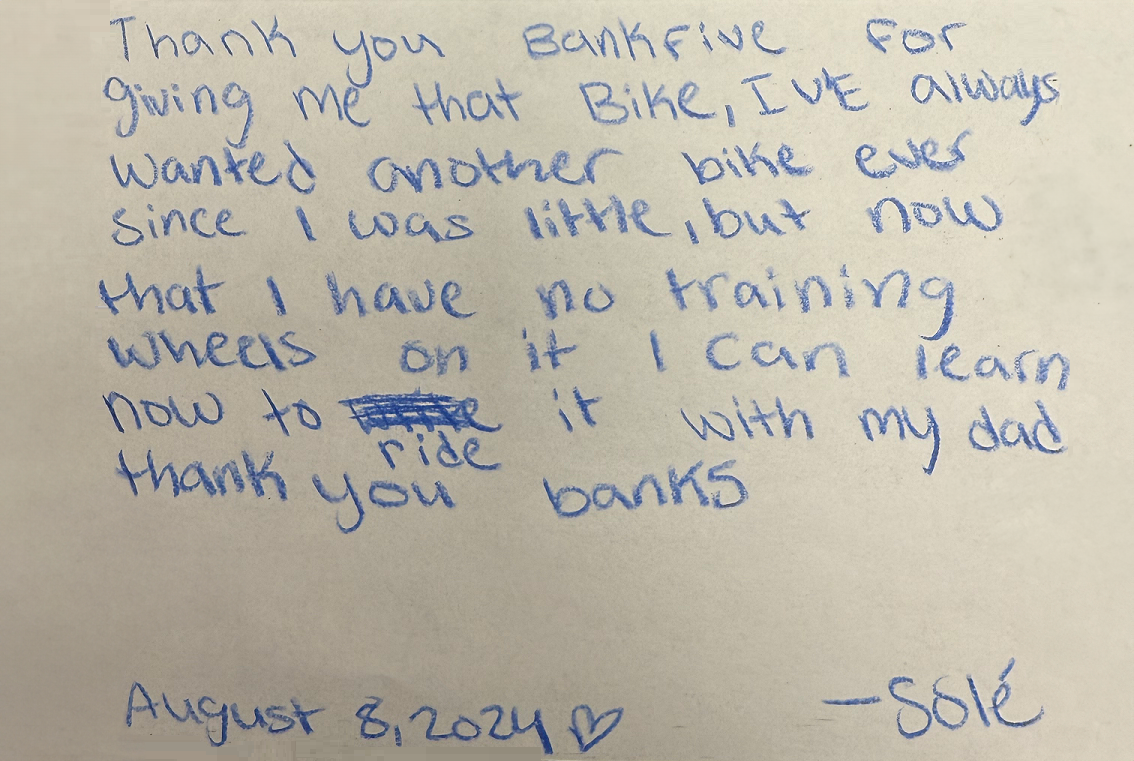 Thank you BankFive For
giving me that Bike, IvE always
wanted another bike ever
since I was little, but now
that I have no training
wheels on it I can learn
now to it with my dad
ride
thank you banks
August 8, 2024 ♡ –Solé